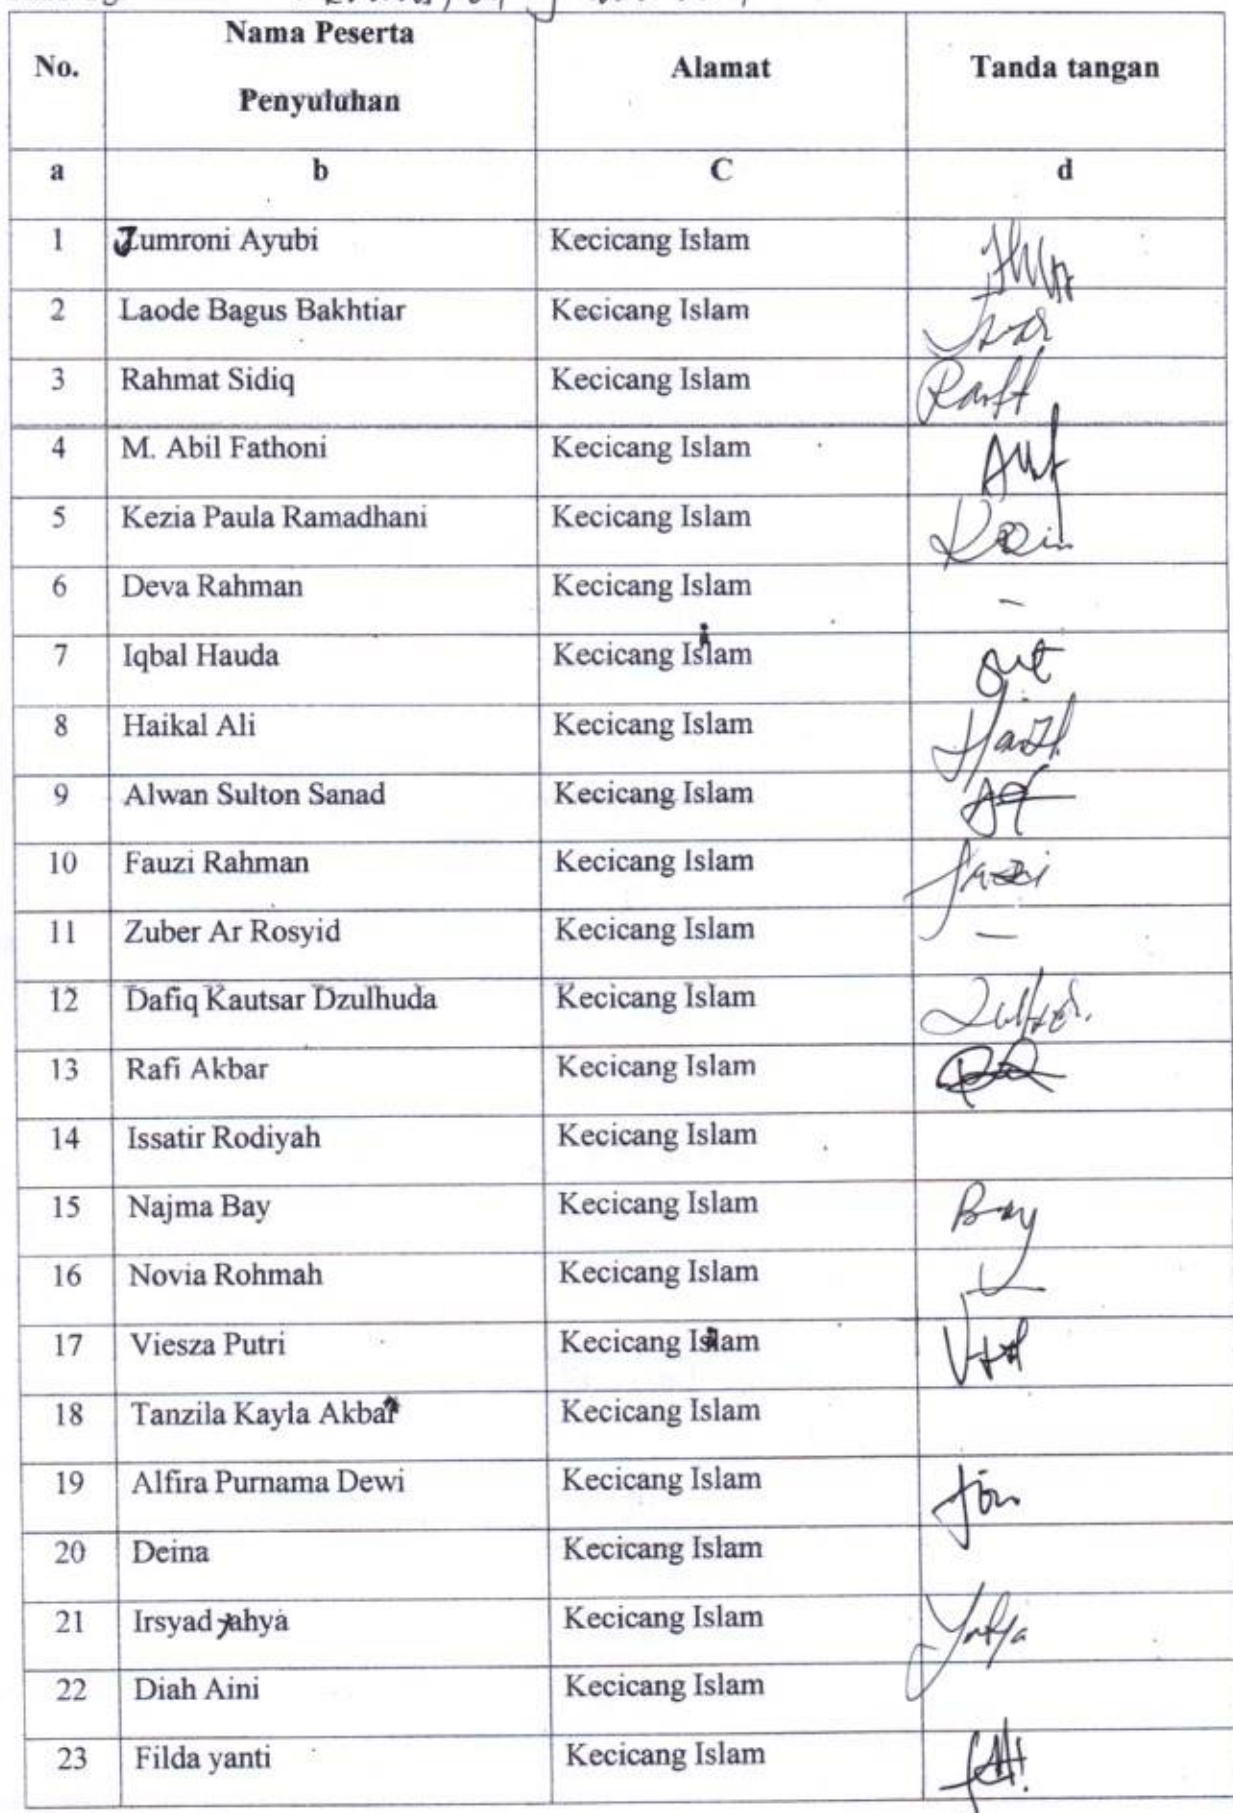 No. Nama Peserta Penyuluhan Alamat Tanda tangan
a b C d
1 Jumroni Ayubi Kecicang Islam
2 Laode Bagus Bakhtiar Kecicang Islam
3 Rahmat Sidiq Kecicang Islam
4 M. Abil Fathoni Kecicang Islam
5 Kezia Paula Ramadhani Kecicang Islam
6 Deva Rahman Kecicang Islam -
7 Iqbal Hauda Kecicang Islam
8 Haikal Ali Kecicang Islam
9 Alwan Sulton Sanad Kecicang Islam
10 Fauzi Rahman Kecicang Islam
11 Zuber Ar Rosyid Kecicang Islam -
12 Dafiq Kautsar Dzulhuda Kecicang Islam
13 Rafi Akbar Kecicang Islam
14 Issatir Rodiyah Kecicang Islam
15 Najma Bay Kecicang Islam Bay
16 Novia Rohmah Kecicang Islam
17 Viesza Putri Kecicang Islam
18 Tanzila Kayla Akbar Kecicang Islam
19 Alfira Purnama Dewi Kecicang Islam
20 Deina Kecicang Islam
21 Irsyad yahya Kecicang Islam
22 Diah Aini Kecicang Islam
23 Filda yanti Kecicang Islam